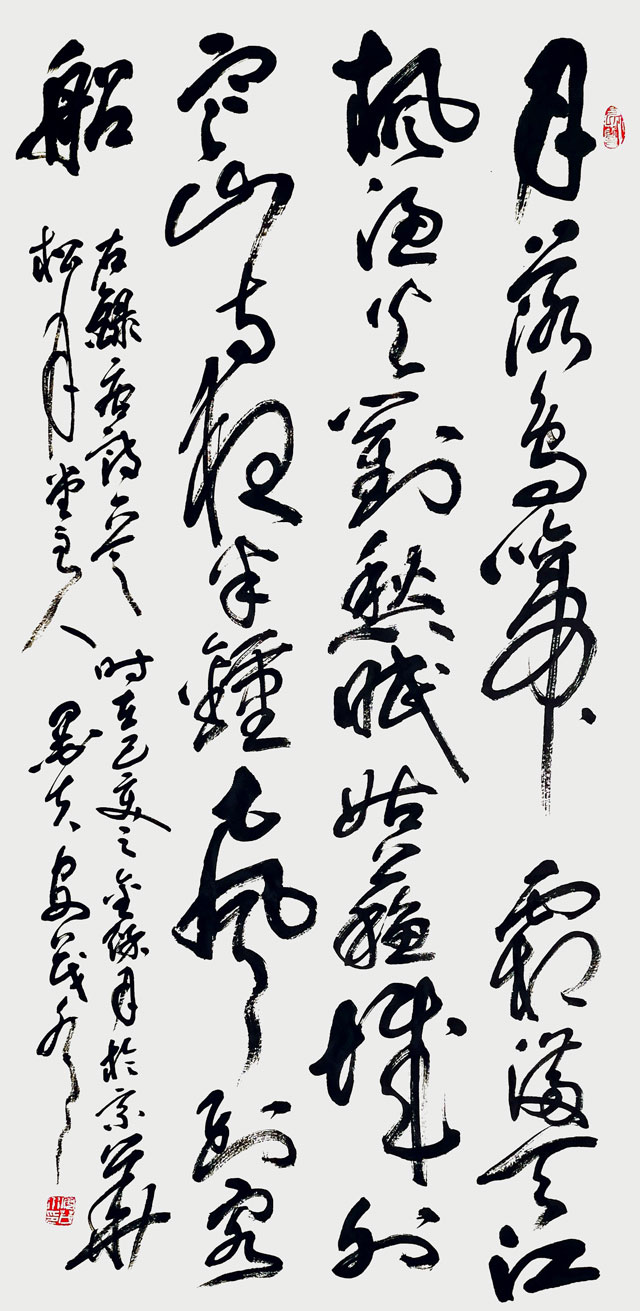 月落烏啼霜滿天江
楓漁火對愁眠姑蘇城外
寒山寺夜半鐘聲到客
船
右錄唐詩一首时在己亥之金秋月於京華
松月堂主人